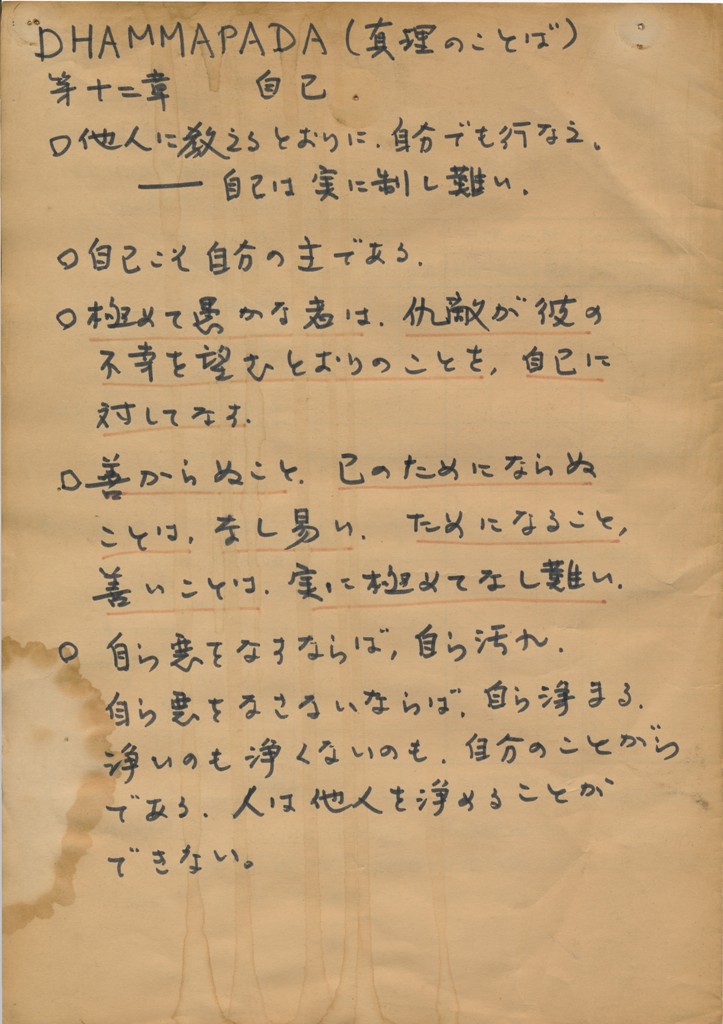 DHAMMAPADA (真理のことば)
第十二章 自己.
○他人に教えるとおりに.自分でも行なえ。
── 自己は実に制し難い.
○自己こそ自分の主である.
○極めて愚かな者は、仇敵が彼の
不幸を望むとおりのことを,自己に
対してなす.
○善からぬこと、己のためにならぬ
ことは,なし易い. ためになること,
善いことは.実に極めてなし難い.
○自ら悪をなすならば,自ら汚れ.
自ら悪をなさないならば,自ら浄まる.
浄いのも浄くないのも.自分のことがら
である.人は他人を浄めることが
できない。